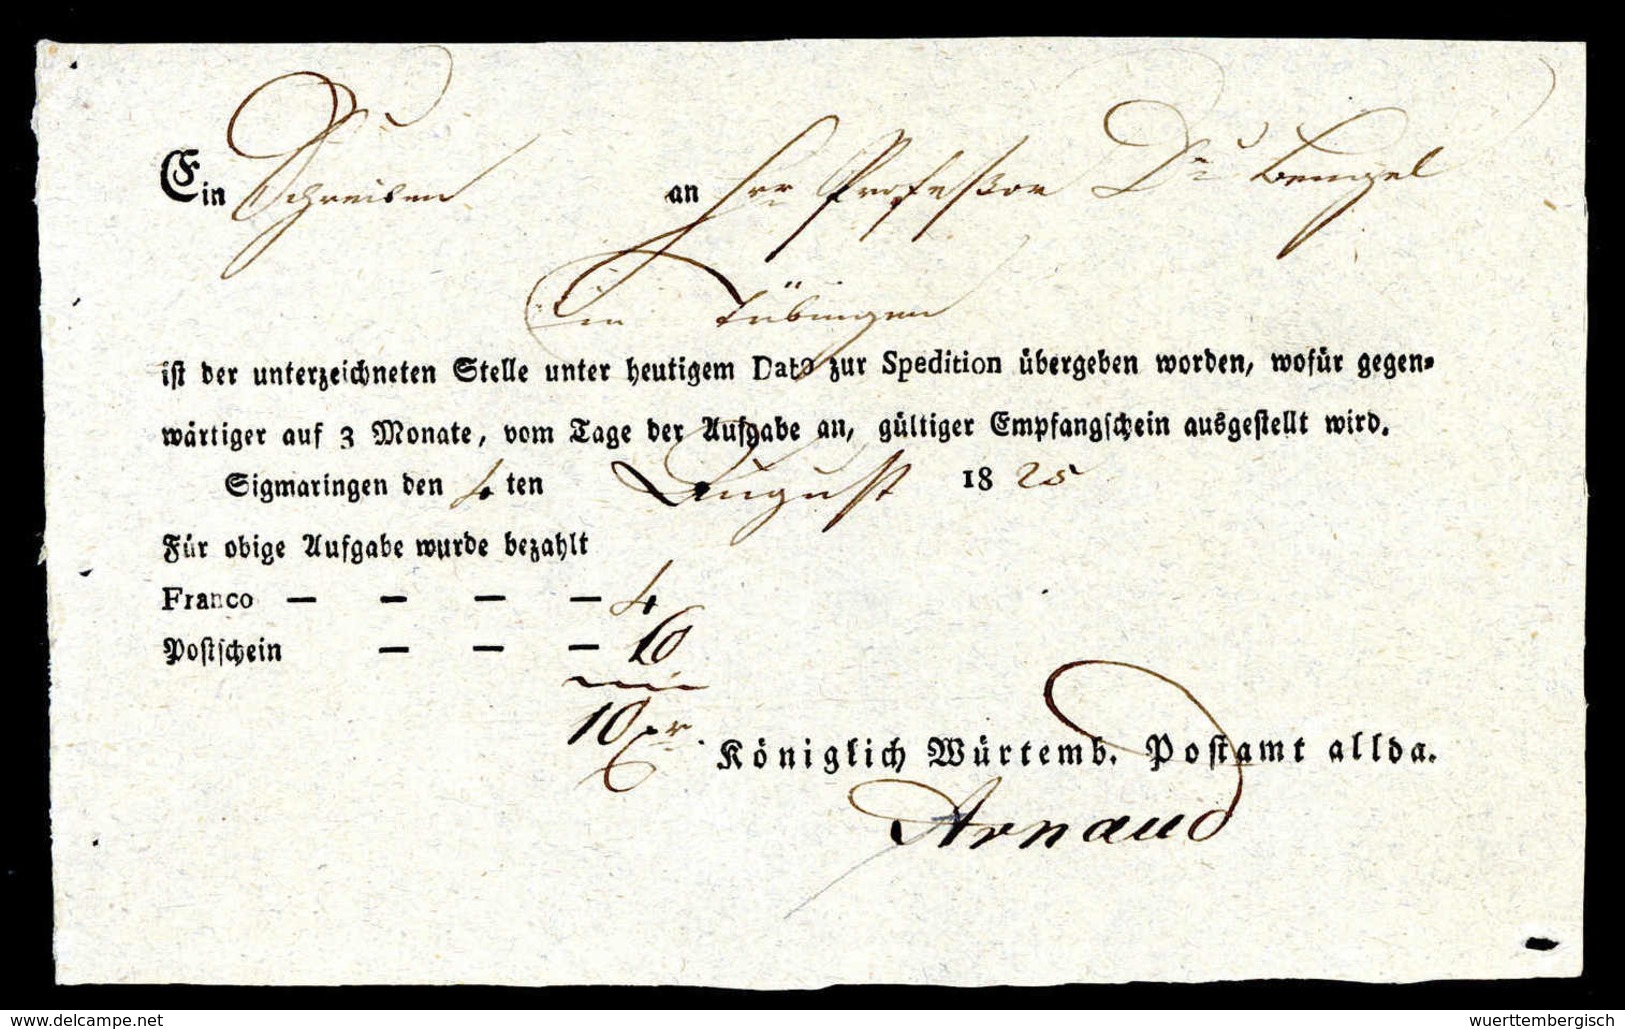 Ein Schreiben an Hrr Professor Dr. Bengel
in Tübingen
ist der unterzeichneten Stelle unter heutigem Dato zur Spedition übergeben worden, wofür gegen=
wärtiger auf 3 Monate, vom Tage der Aufgabe an, gültiger Empfangschein ausgestellt wird.
Sigmaringen den 4 ten August 18 25
Für obige Aufgabe wurde bezahlt
Franco — — — — 4
Postschein — — — 6
10 xr.
Königlich Würtemb. Postamt allda.
Arnaud
www.delcampe.net
wuerttembergisch